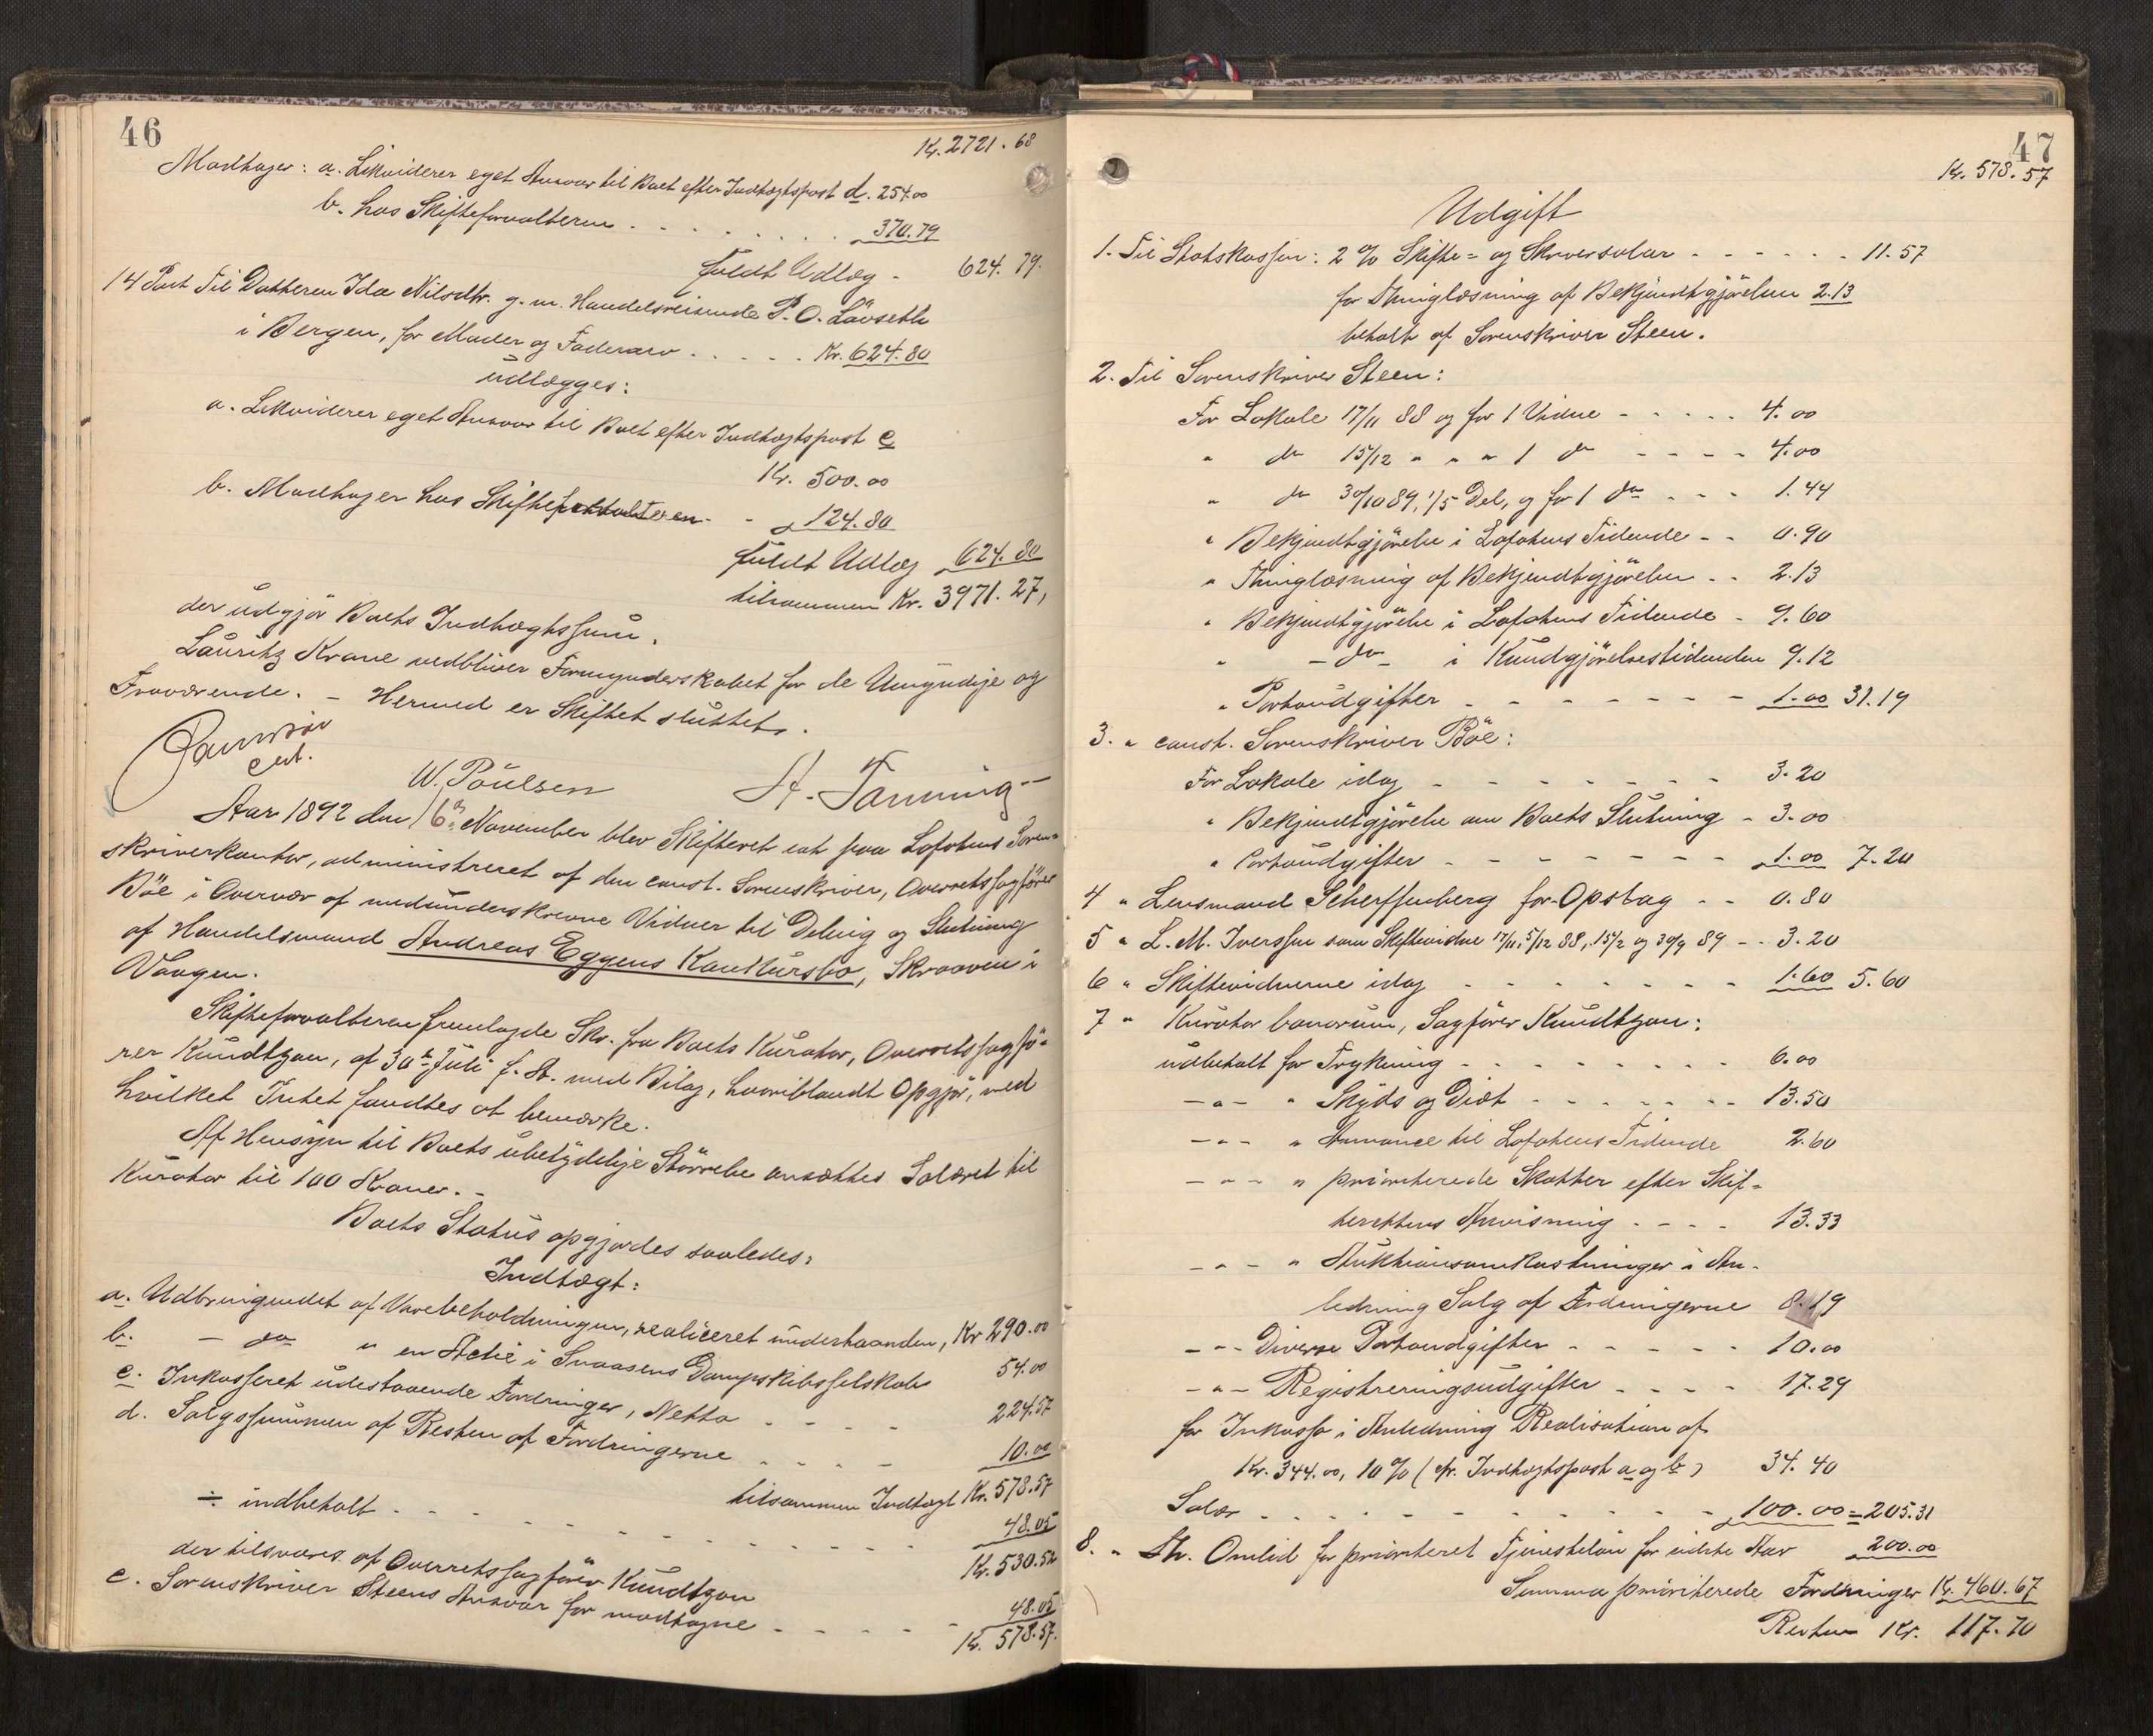 46
Kr. 2721.68
Modtager: a. Likviderer eget Ansvar til Boet efter Indtægtspost d. 254.00
b. hos Skifteforvalteren . . . . . . . 370.79
fuldt Udlæg - 624.79.
14 Post Til Datteren Ida Nilsdtr. g. m. Handelsreisende P. O. Lövseth
i Bergen, for Moder og Faderarv . . . . . Kr. 624.80
udlægges:
a. Likviderer eget Ansvar til Boet efter Indtægtspost e
Kr. 500.00
b. Modtager hos Skifteforvalteren - - 124.80
fuldt Udlæg 624.80
tilsammen Kr. 3971.27,
der udgjör Boets Indtægtssum.
Lauritz Krane vedbliver Formynderskabet for de Umyndige og
Fraværende. - Hermed er Skiftet sluttet.
cst.
W. Poulsen
A. Tanning
Aar 1892 den 16de November blev Skifteret sat paa Lofotens Soren=
skriverkontor, administreret af den const. Sorenskriver, Overretssagförer
Böe i Overvær af medunderskrevne Vidner til Deling og Slutning
af Handelsmand Andreas Eggens Konkursbo, Skraaven i
Vaagen.
Skifteforvalteren fremlagde Skr. fra Boets Kurator, Overretssagfö=
rer Knudtzon, af 30te Juli f. A. med Bilag, hvoriblandt Opgjör, ved
hvilket Intet fandtes at bemærke.
Af Hensyn til Boets ubetydelige Störrelse ansættes Salæret til
Kurator til 100 Kroner. -
Boets Status opgjordes saaledes:
Indtægt:
a. Udbringendet af Varebeholdningen, realiceret underhaanden, Kr 290.00
b. - do " en Actie i Snaasens Dampskibsselskab 54.00
c. Inkasseret udestaaende Fordringer, Netto - - - 224.57
d. Salgssummen af Resten af Fordringerne - - - - 10.00
tilsammen Indtægt Kr. 578.57
÷ indbetalt - - - - - - - - - - 48.05
Kr. 530.52
der tilsvares af Overretssagförer Knudtzon
e. Sorenskriver Steens Ansvar for modtagne - - - - - 48.05
Kr. 578.57.
47
Kr. 578.57
Udgift
1. Til Statskassen: 2 % Skifte= og Skriversalær - - - - - - 11.57
for Thinglæsning af Bekjendtgjörelsen 2.13
betalt af Sorenskriver Steen.
2. Til Sorenskriver Steen:
For Lokale 17/11 88 og for 1 Vidne - - - - - 4.00
" do 15/12 " " " 1 do - - - - 4.00
" do 30/10 89, 1/5 Del, og for 1 do - - - 1.44
" Bekjendtgjörelse i Lofotens Tidende - - 0.90
" Thinglæsning af Bekjendtgjörelsen - - 2.13
" Bekjendtgjörelse i Lofotens Tidende - 9.60
" - do - i Kundgjörelsestidenden 9.12
" Portoudgifter - - - - - - - 1.00 31.19
3. " const. Sorenskriver Böe:
For Lokale idag - - - - - - - 3.20
" Bekjendtgjörelse om Boets Slutning - 3.00
" Portoudgifter - - - - - - - 1.00 7.20
4 " Lensmand Scherffenberg for Opslag - - 0.80
5 " L. M. Iverssen som Skiftevidne 17/11, 5/12 88, 15/2 og 30/9 89 - - 3.20
6 " Skiftevidnerne idag - - - - - - - - 1.60 5.60
7 " Kurator bonorum, Sagförer Knudtzon:
udbetalt for Trykning - - - - - - - - 6.00
- " - " Skyds og Diæt - - - - - - - 13.50
- " - " Annonce til Lofotens Tidende 2.60
- " - " prioriterede Skatter efter Skif=
terettens Anvisning - - - - 13.33
- " - " Auktionsomkostninger i An-
ledning Salg af Fordringerne 8.19
- " - Diverse Portoudgifter - - - - - 10.00
- " - Registreringsudgifter - - - - 17.29
for Inkasso i Anledning Realisation af
Kr. 344.00, 10 % (cfr. Indtægtspost a og b) 34.40
Salær - - - - - - - - - 100.00 = 205.31
8. " A. Omlid for prioriteret Tjenestelön for sidste Aar 200.00
Summa prioriterede Fordringer Kr. 460.67
Resten Kr. 117.70